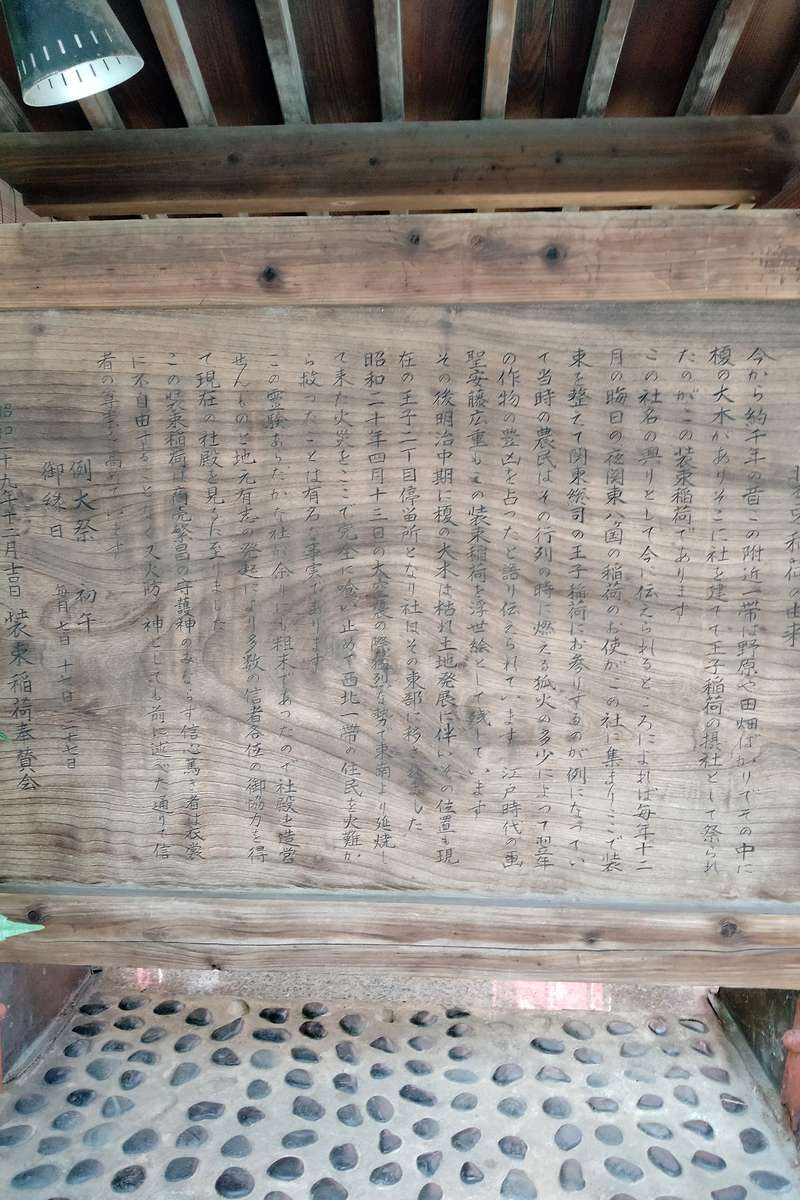 装束稲荷の由来
今から約千年の昔この附近一帯は野原や田畑ばかりでその中に
榎の大木がありそこに社を建てて王子稲荷の摂社として祭られ
たのがこの装束稲荷であります
この社名の興りとして今に伝えられるところによれば毎年十二
月の晦日の夜関東八ヶ国の稲荷のお使がこの社に集まりここで装
束を整えて関東総司の王子稲荷にお参りするのが例になってい
て当時の農民はその行列の時に燃える狐火の多少によって翌年
の作物の豊凶を占ったと語り伝えられています 江戸時代の画
聖安藤広重もこの装束稲荷を浮世絵として残しています
その後明治中期に榎の大木は枯れ土地発展に伴いその位置も現
在の王子二丁目停留所となり社はその東部に移されました
昭和二十年四月十三日の大空襲の際猛烈な勢で東南より延焼し
て来た火災をここで完全に喰い止めて西北一帯の住民を火難か
ら救ったことは有名な事実であります
この霊験あらたかな社が余りにも粗末であったので社殿を造営
せんものと地元有志の発起により多数の信者各位の御協力を得
て現在の社殿を見るに至りました
この装束稲荷は商売繁昌の守護神のみならず信心篤き者は衣裳
に不自由することなく又火防の神としても前に述べた通りで信
者の尊崇を高めています
例大祭 初午
御縁日 毎月七日 十七日 二十七日
昭和二十九年十二月吉日 装束稲荷奉賛会